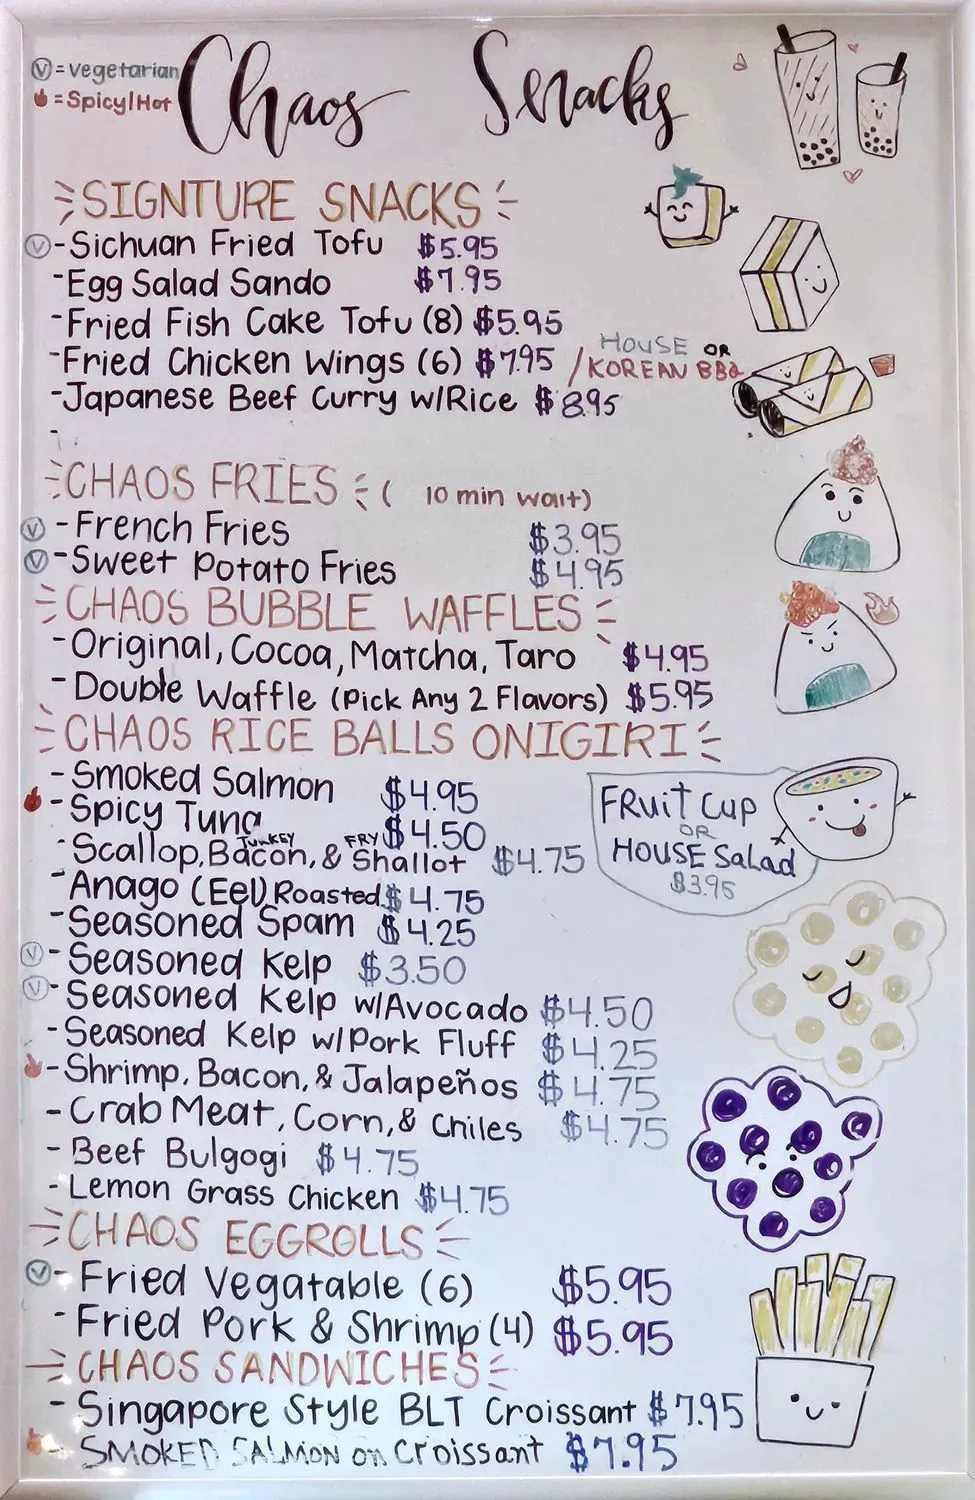 Ⓥ = vegetarian
= Spicy/Hot
Chaos Snacks
SIGNTURE SNACKS
Ⓥ - Sichuan Fried Tofu $5.95
- Egg Salad Sando $7.95
- Fried Fish Cake Tofu (8) $5.95
- Fried Chicken Wings (6) $7.95 / HOUSE OR KOREAN BBQ
- Japanese Beef Curry w/Rice $8.95
-
CHAOS FRIES ( 10 min wait)
Ⓥ - French Fries $3.95
Ⓥ - Sweet Potato Fries $4.95
CHAOS BUBBLE WAFFLES
- Original, Cocoa, Matcha, Taro $4.95
- Double Waffle (Pick Any 2 Flavors) $5.95
CHAOS RICE BALLS ONIGIRI
- Smoked Salmon $4.95
- Spicy Tuna $4.50
- Scallop, Turkey Bacon, & Fry Shallot $4.75
- Anago (Eel) Roasted $4.75
- Seasoned Spam $4.25
Ⓥ - Seasoned Kelp $3.50
Ⓥ - Seasoned Kelp w/Avocado $4.50
- Seasoned Kelp w/Pork Fluff $4.25
- Shrimp, Bacon, & Jalapeños $4.75
- Crab Meat, Corn, & Chiles $4.75
- Beef Bulgogi $4.75
- Lemon Grass Chicken $4.75
FRuit Cup
OR
HOUSE Salad
$3.95
CHAOS EGGROLLS
Ⓥ - Fried Vegatable (6) $5.95
- Fried Pork & Shrimp (4) $5.95
CHAOS SANDWICHES
- Singapore Style BLT Croissant $7.95
- SMOKED SALMON on Croissant $7.95